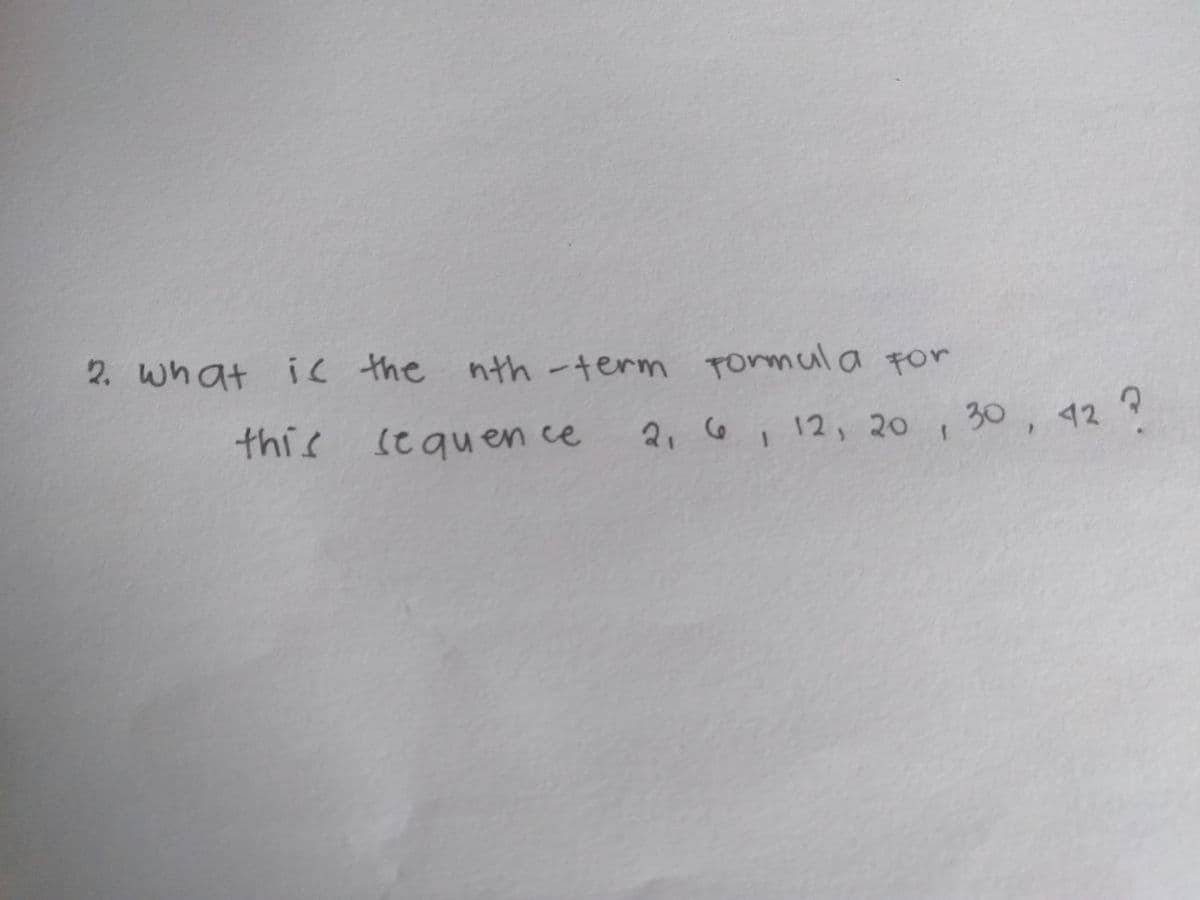 2. What is the nth-term formula for
this sequence 2, 6, 12, 20, 30, 42?